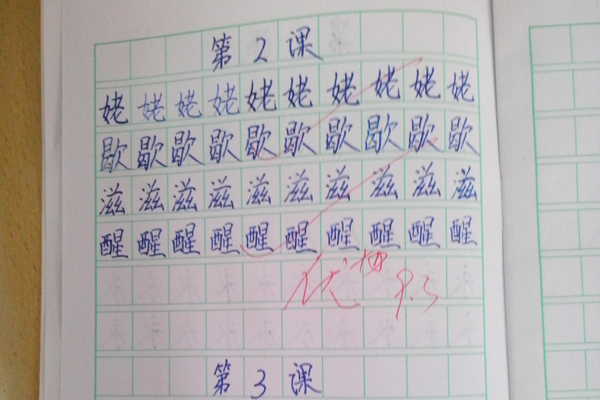 第2课
姥姥姥姥姥姥姥姥姥姥
歇歇歇歇歇歇歇歇歇歇
滋滋滋滋滋滋滋滋滋滋
醒醒醒醒醒醒醒醒醒醒
优 9.3
第3课